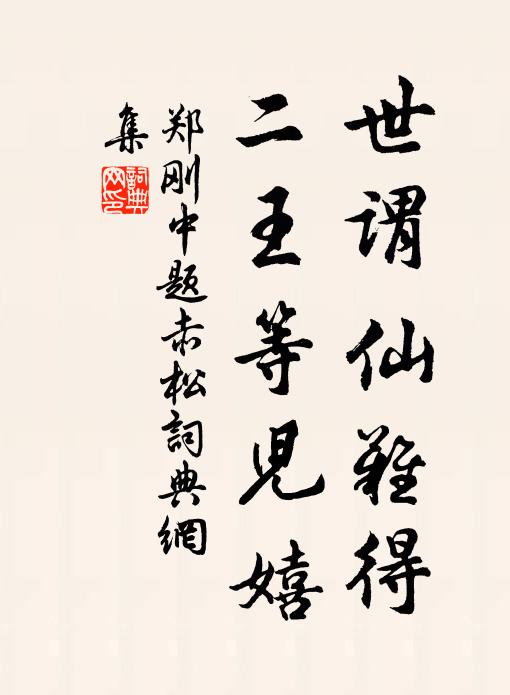 世谓仙难得
二王等児嬉
郑刚中题赤松詞典網
集
詞典网印